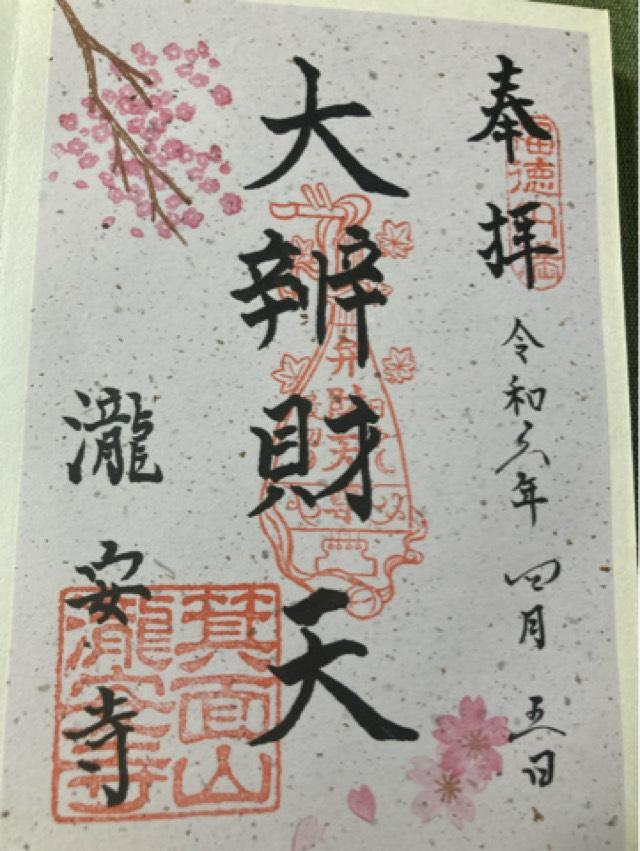 奉拝
令和六年四月五日
大辨財天
瀧安寺
箕面山
瀧安寺